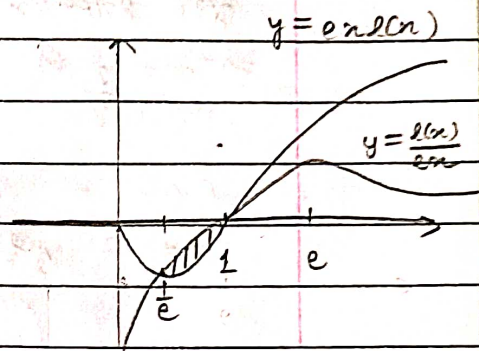 y = e x l(x)
y = l(x)/ex
1/e 1 e